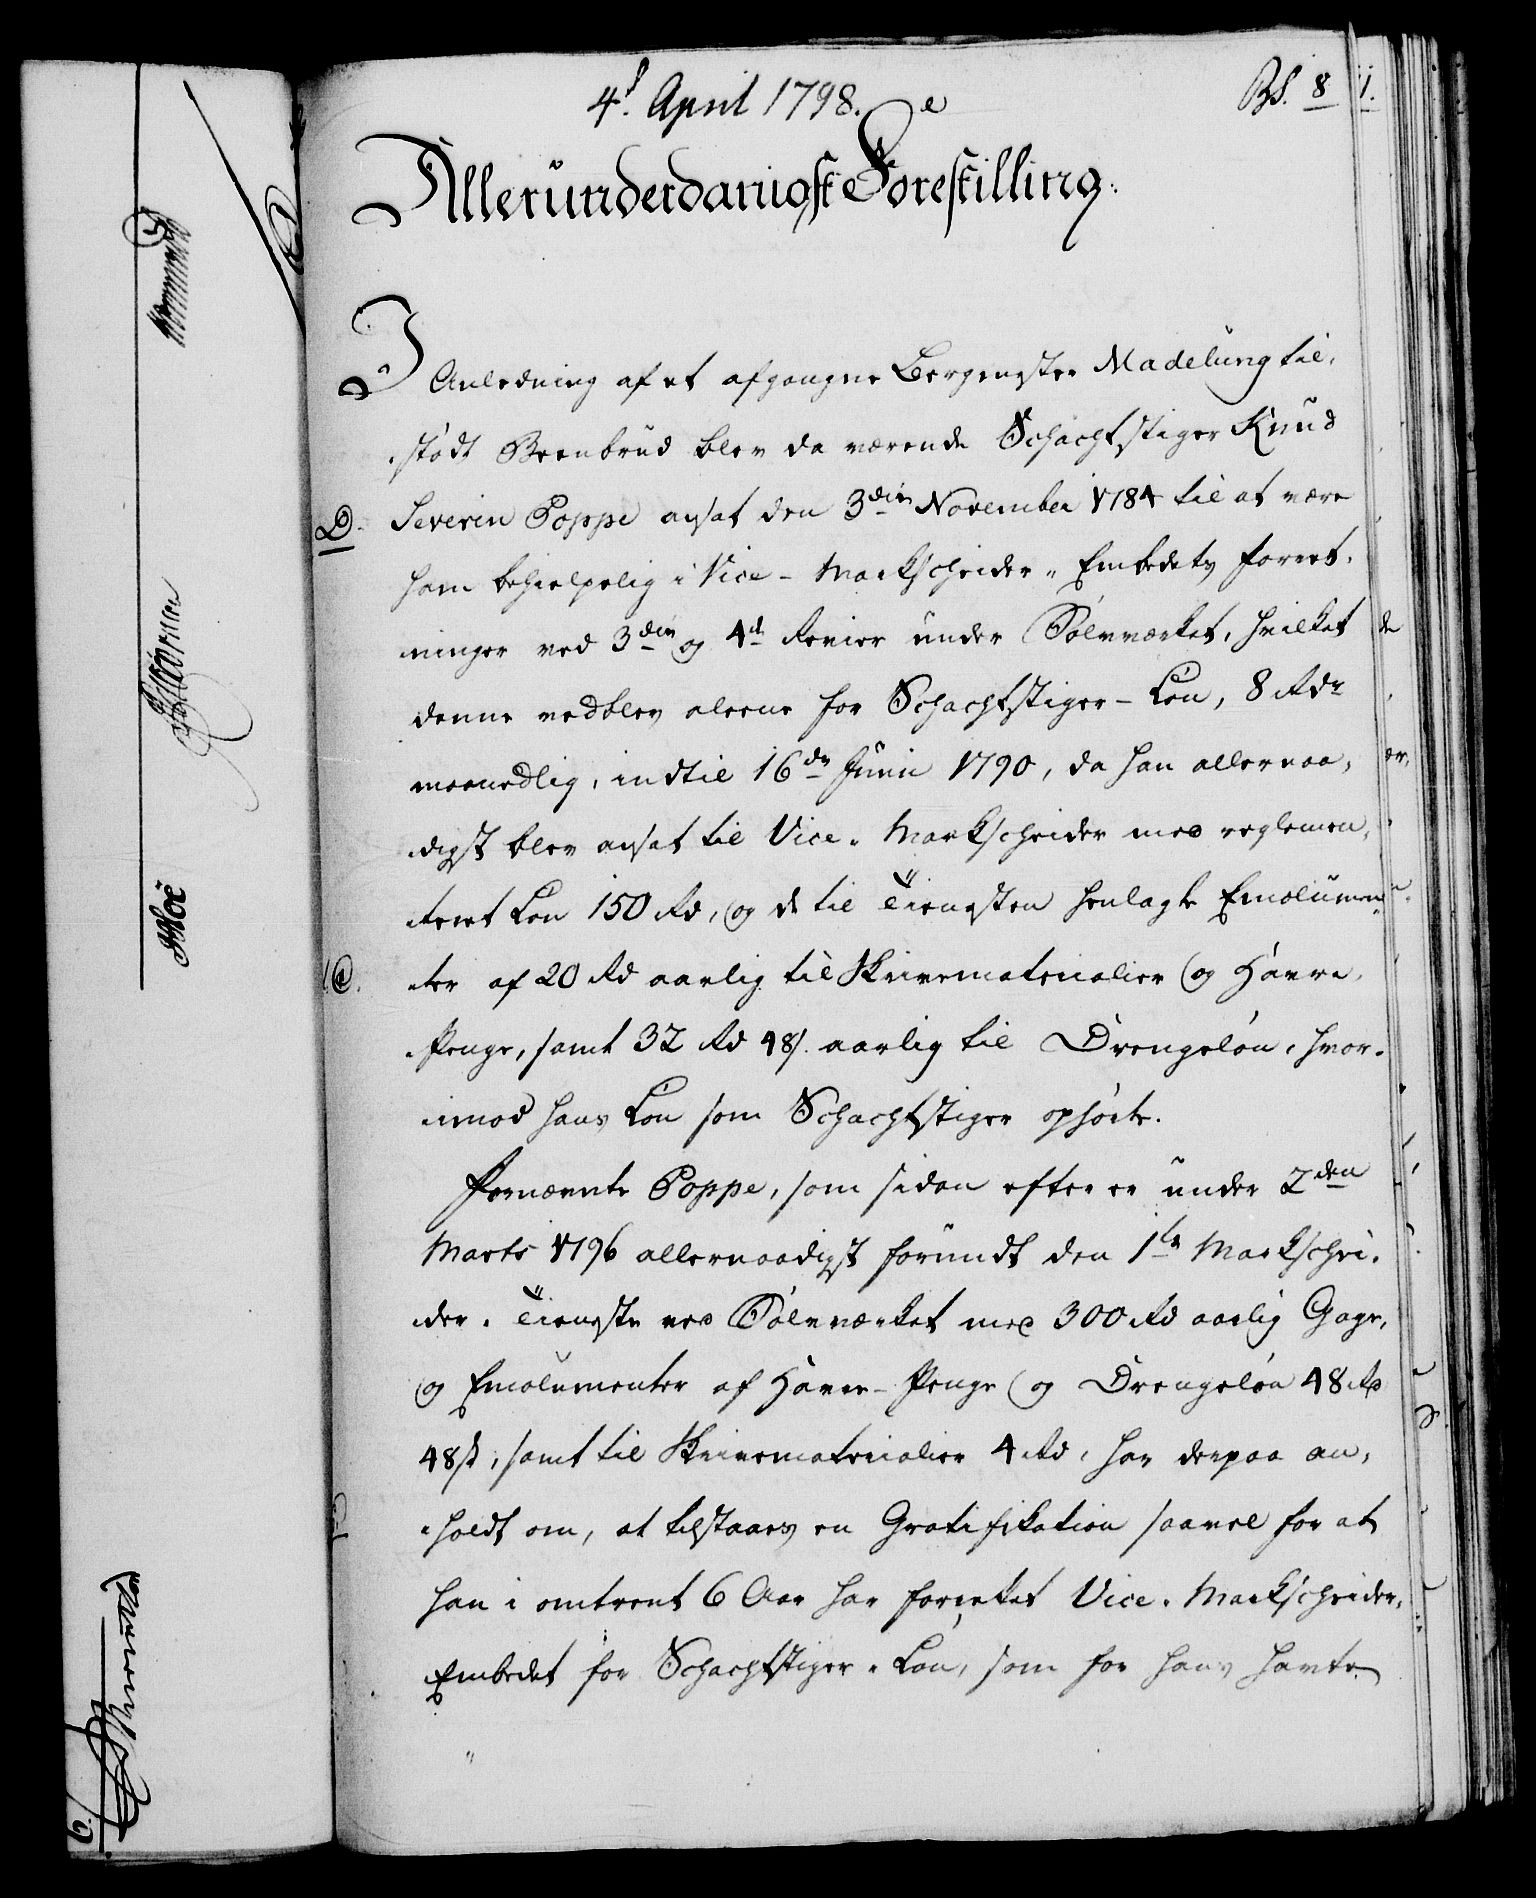 4d. April 1798.
Bl. 8
Allerunderdanigste Forestilling.
I Anledning af et afgangne Bergmester Madelung til-
stødt Beenbrud blev da værende Schachtstiger Knud
D. Severin Poppe ansat den 3die November 1784 til at være
ham behielpelig i Vice-Markscheider-Embedets Forret-
ninger ved 3die og 4de Revier under Sølvværket, hvilket
denne vedblev aleene for Schachtstiger-Løn, 8 Rdr
maanedlig, indtil 16de Junii 1790, da han allernaa-
digst blev ansat til Vice-Markscheider med reglemen-
teret Løn 150 Rd, og de til Tienesten henlagte Emolumen-
ter af 20 Rd aarlig til Skrivematerialier og Havre-
Penge, samt 32 Rd 48 s. aarlig til Drengeløn, hvor-
imod hans Løn som Schachtstiger ophørte.
Fornævnte Poppe, som siden efter er under 2den
Marts 1796 allernaadigst forundt den 1ste Markschei-
der-Tieneste ved Sølvværket med 300 Rd aarlig Gage,
og Emolumenter af Havre-Penge og Drengeløn 48 Rd
48 s, samt til Skrivematerialier 4 Rd, har derpaa an-
holdt om, at tilstaaes en Gratifikation saavel for at
han i omtrent 6 Aar har forrettet Vice-Markscheider-
Embedet for Schachtstiger-Løn, som for hans havte